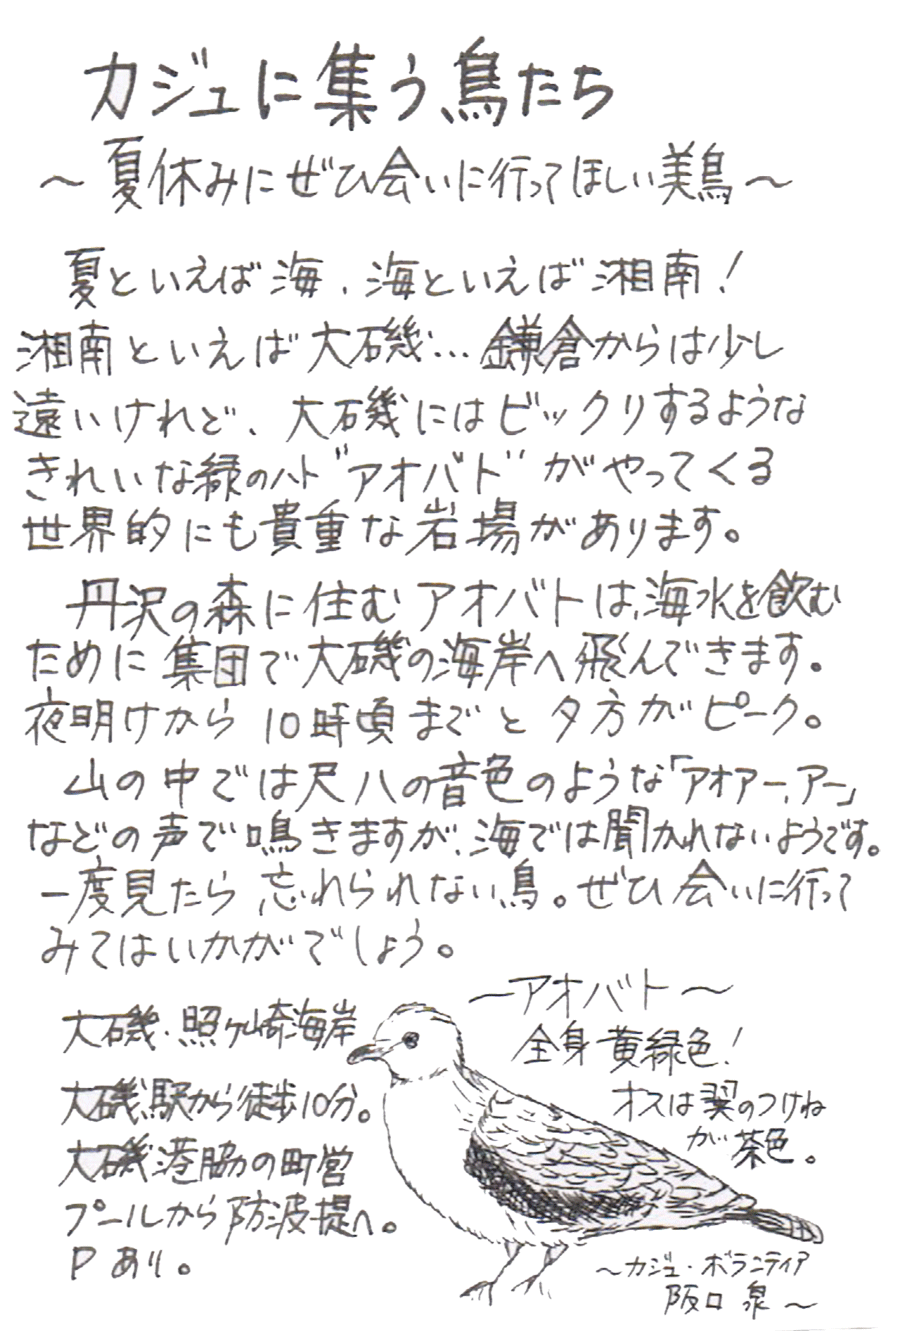 カジュに集う鳥たち
～夏休みにぜひ会いに行ってほしい美鳥～
夏といえば海、海といえば湘南！
湘南といえば大磯…鎌倉からは少し
遠いけれど、大磯にはビックリするような
きれいな緑のハト"アオバト"がやってくる
世界的にも貴重な岩場があります。
丹沢の森に住むアオバトは、海水を飲む
ために集団で大磯の海岸へ飛んできます。
夜明けから10時頃までと夕方がピーク。
山の中では尺八の音色のような「アオアー、アー」
などの声で鳴きますが、海では聞かれないようです。
一度見たら忘れられない鳥。ぜひ会いに行って
みてはいかがでしょう。
～アオバト～
全身黄緑色！
オスは翼のつけね
が茶色。
大磯・照ヶ崎海岸
大磯駅から徒歩10分。
大磯港脇の町営
プールから防波堤へ。
Pあり。
～カジュ・ボランティア
阪口 泉～